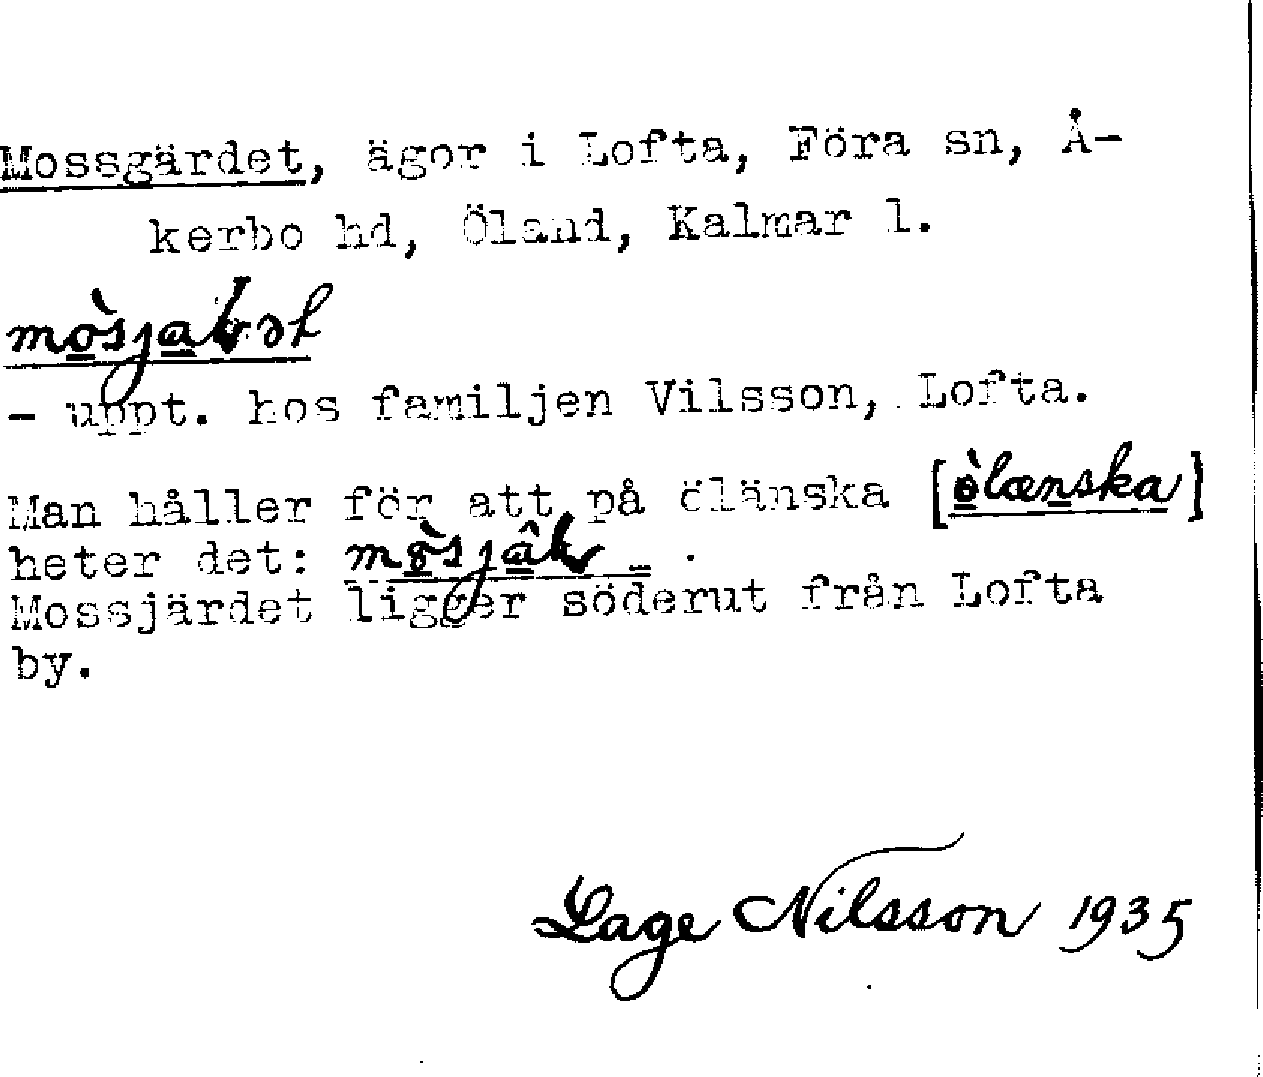 Mossgärdet, ägor i Lofta, Föra sn, Å-
kerbo hd, Öland, Kalmar l.
- uppt. hos familjen Vilsson, Lofta.
Man håller för att på ölänska [òlænska]
heter det:
Mossjärdet ligger söderut från Lofta
by.
Lage Nilsson 1935